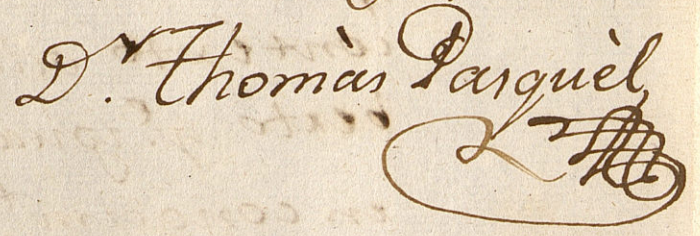 Dr. Thomàs Pasquèl